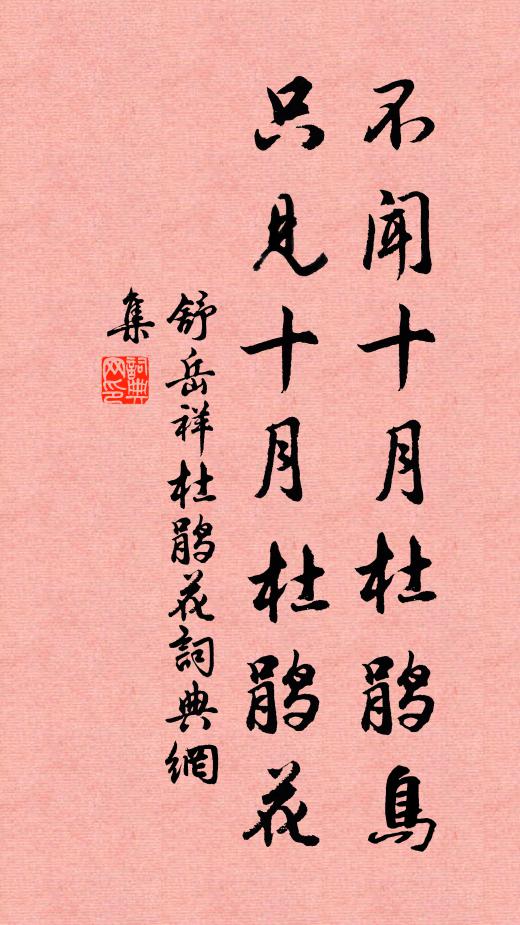 不聞十月杜鵑鳥
只見十月杜鵑花
舒岳祥杜鵑花詞典網
集
詞典
网印